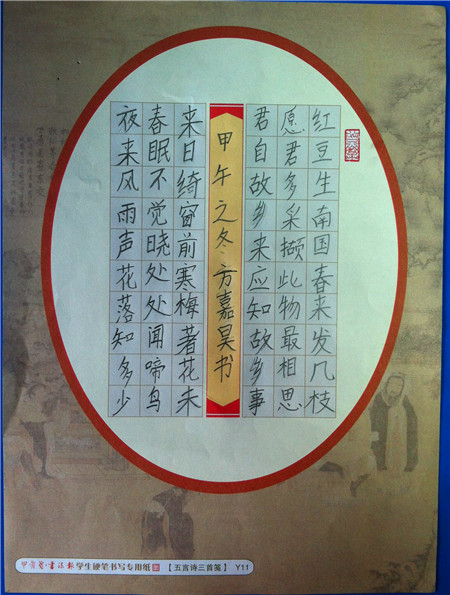 红豆生南国春来发几枝
愿君多采撷此物最相思
君自故乡来应知故乡事
甲午之冬·方嘉昊书
来日绮窗前寒梅著花未
春眠不觉晓处处闻啼鸟
夜来风雨声花落知多少
书法报学生硬笔书写专用纸 【五言诗三首笺】 Y11